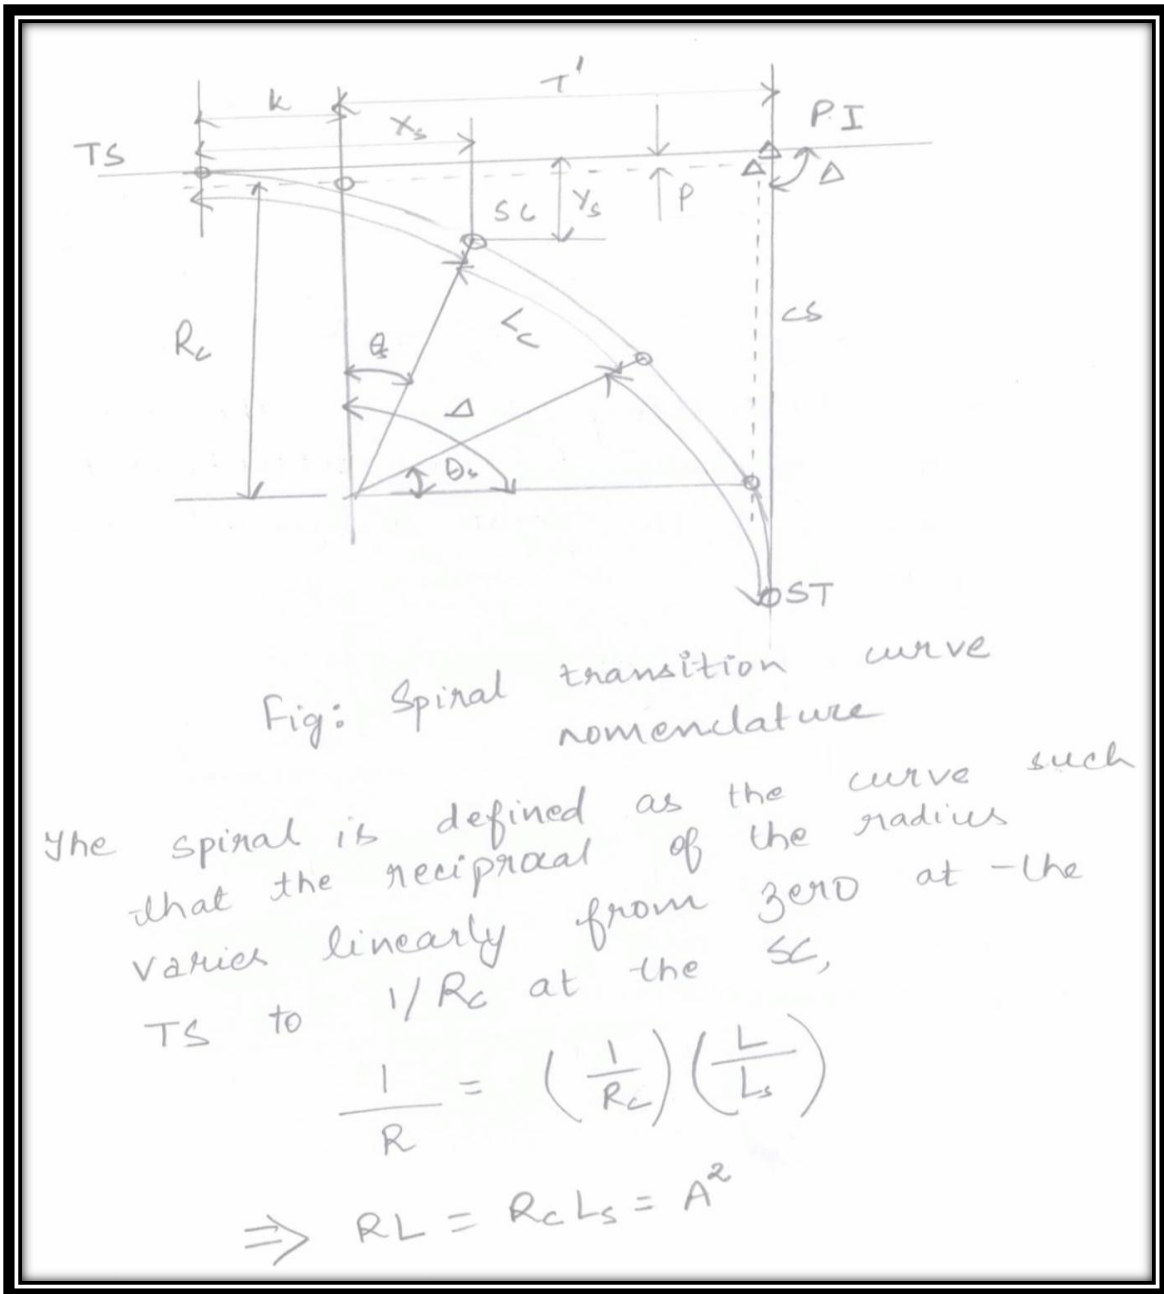 T'
k
P.I
Xs
TS
Δ
SC
Ys
P
CS
Rc
Lc
θs
Δ
θs
ST
Fig: Spiral transition curve
nomenclature
The spiral is defined as the curve such
that the reciprocal of the radius
varies linearly from zero at the
TS to 1/Rc at the SC,
1/R = (1/Rc)(L/Ls)
⇒ RL = RcLs = A²